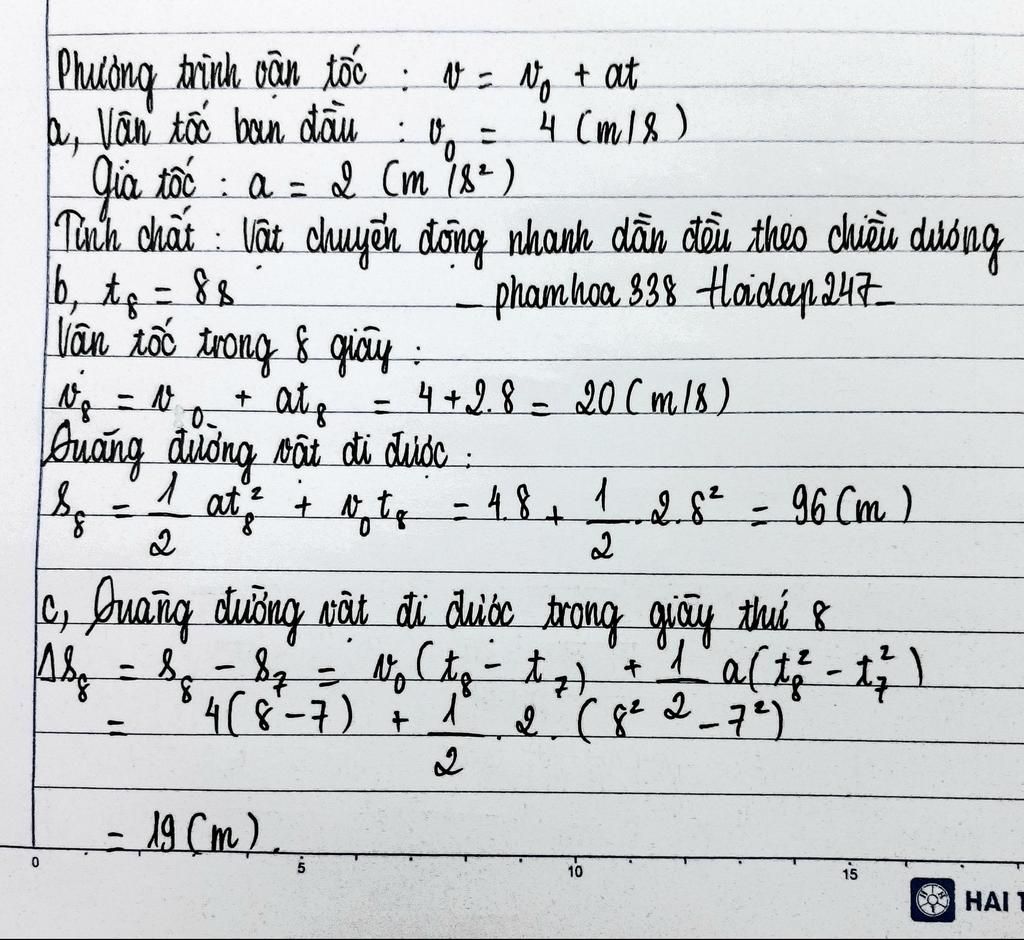 Phương trình vận tốc : v = v₀ + at
a, Vận tốc ban đầu : v₀ = 4 (m/s)
Gia tốc : a = 2 (m/s²)
Tính chất : Vật chuyển động nhanh dần đều theo chiều dương
b, t₈ = 8s – phamhoa338 Hoidap247 –
Vận tốc trong 8 giây :
v₈ = v₀ + at₈ = 4 + 2.8 = 20 (m/s)
Quãng đường vật đi được :
s₈ = 1/2 at₈² + v₀t₈ = 4.8 + 1/2 .2.8² = 96 (m)
c, Quãng đường vật đi được trong giây thứ 8
Δs₈ = s₈ – s₇ = v₀(t₈ – t₇) + 1/2 a(t₈² – t₇²)
= 4(8 – 7) + 1/2 . 2 . (8² – 7²)
= 19 (m).
0 5 10 15
HAI T